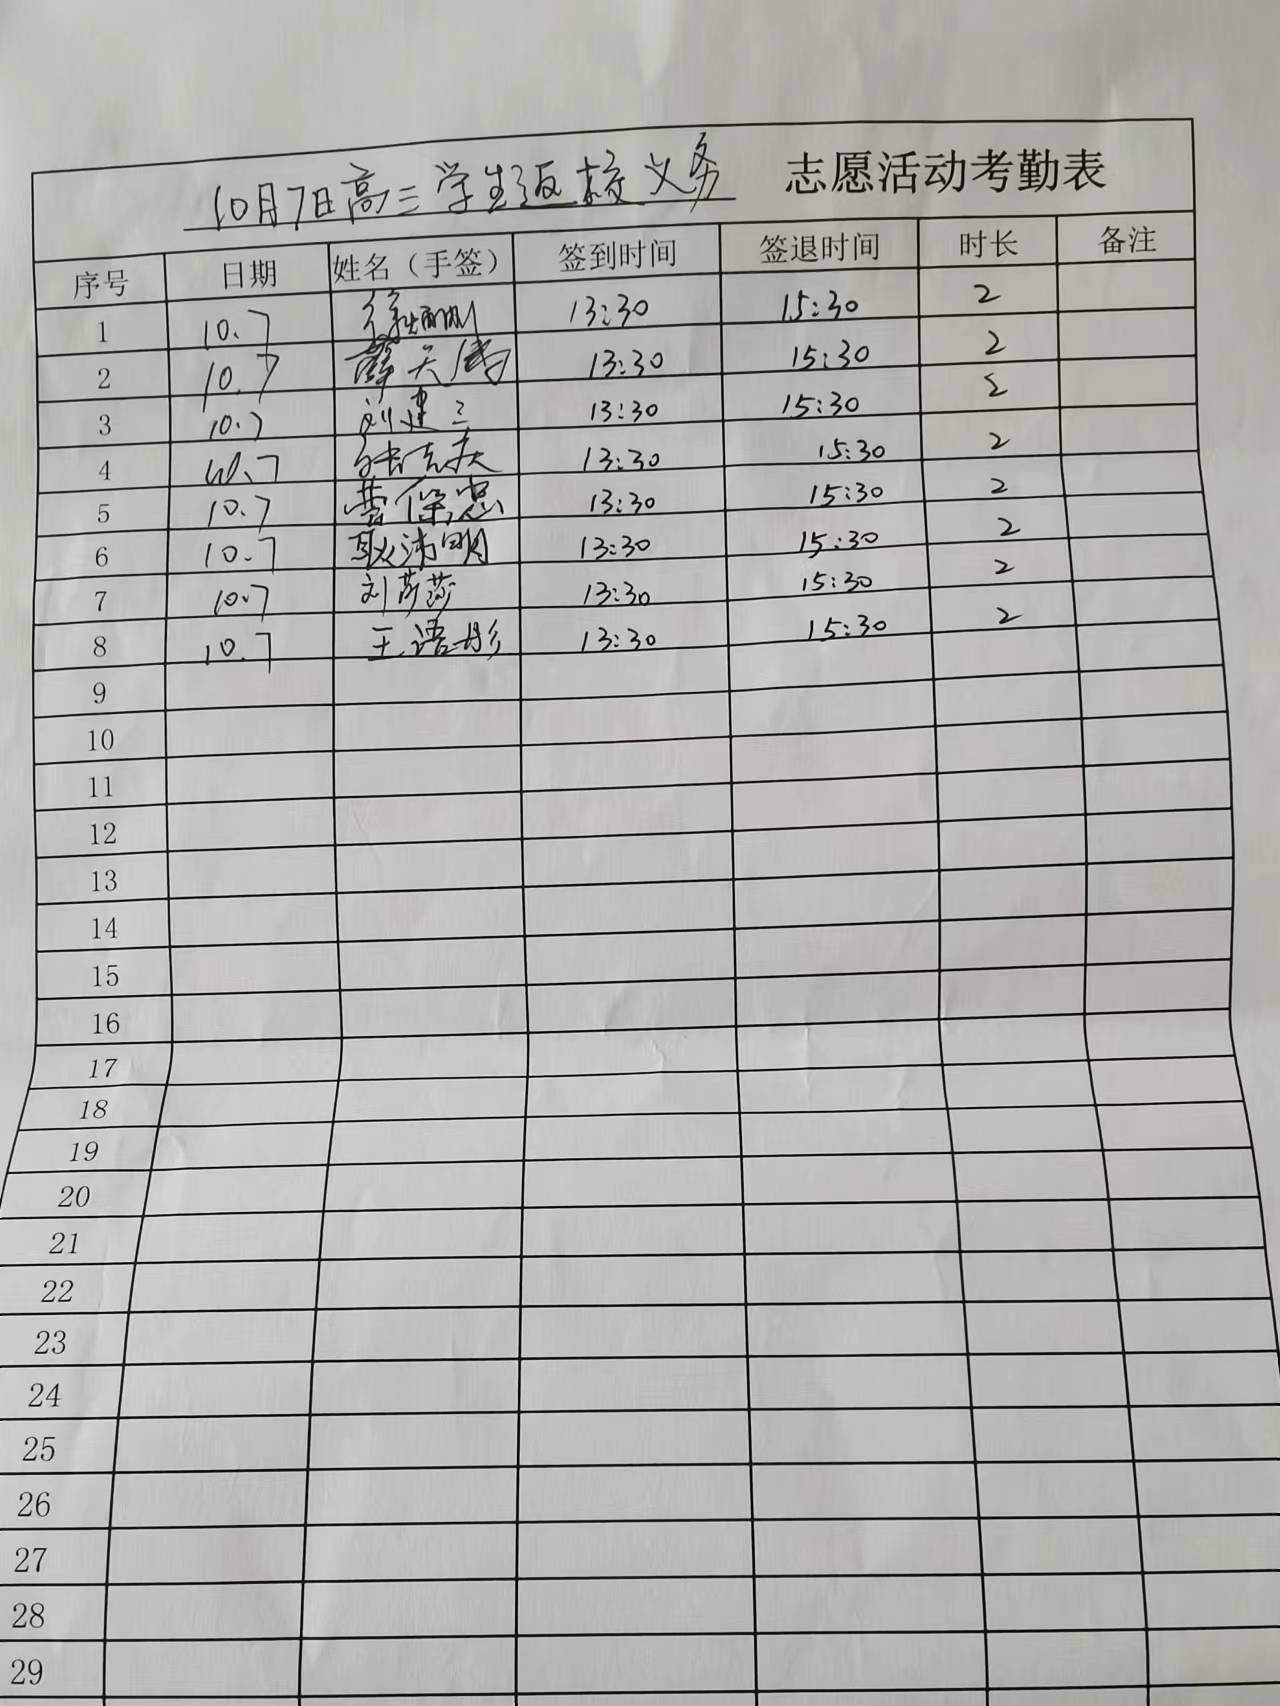 10月7日高三学生返校义务 志愿活动考勤表
序号 日期 姓名（手签） 签到时间 签退时间 时长 备注
1 10.7 13:30 15:30 2
2 10.7 薛天 13:30 15:30 2
3 10.7 刘建 13:30 15:30 2
4 10.7 13:30 15:30 2
5 10.7 曹保忠 13:30 15:30 2
6 10.7 耿沛明 13:30 15:30 2
7 10.7 刘莎莎 13:30 15:30 2
8 10.7 王语彤 13:30 15:30 2
9
10
11
12
13
14
15
16
17
18
19
20
21
22
23
24
25
26
27
28
29